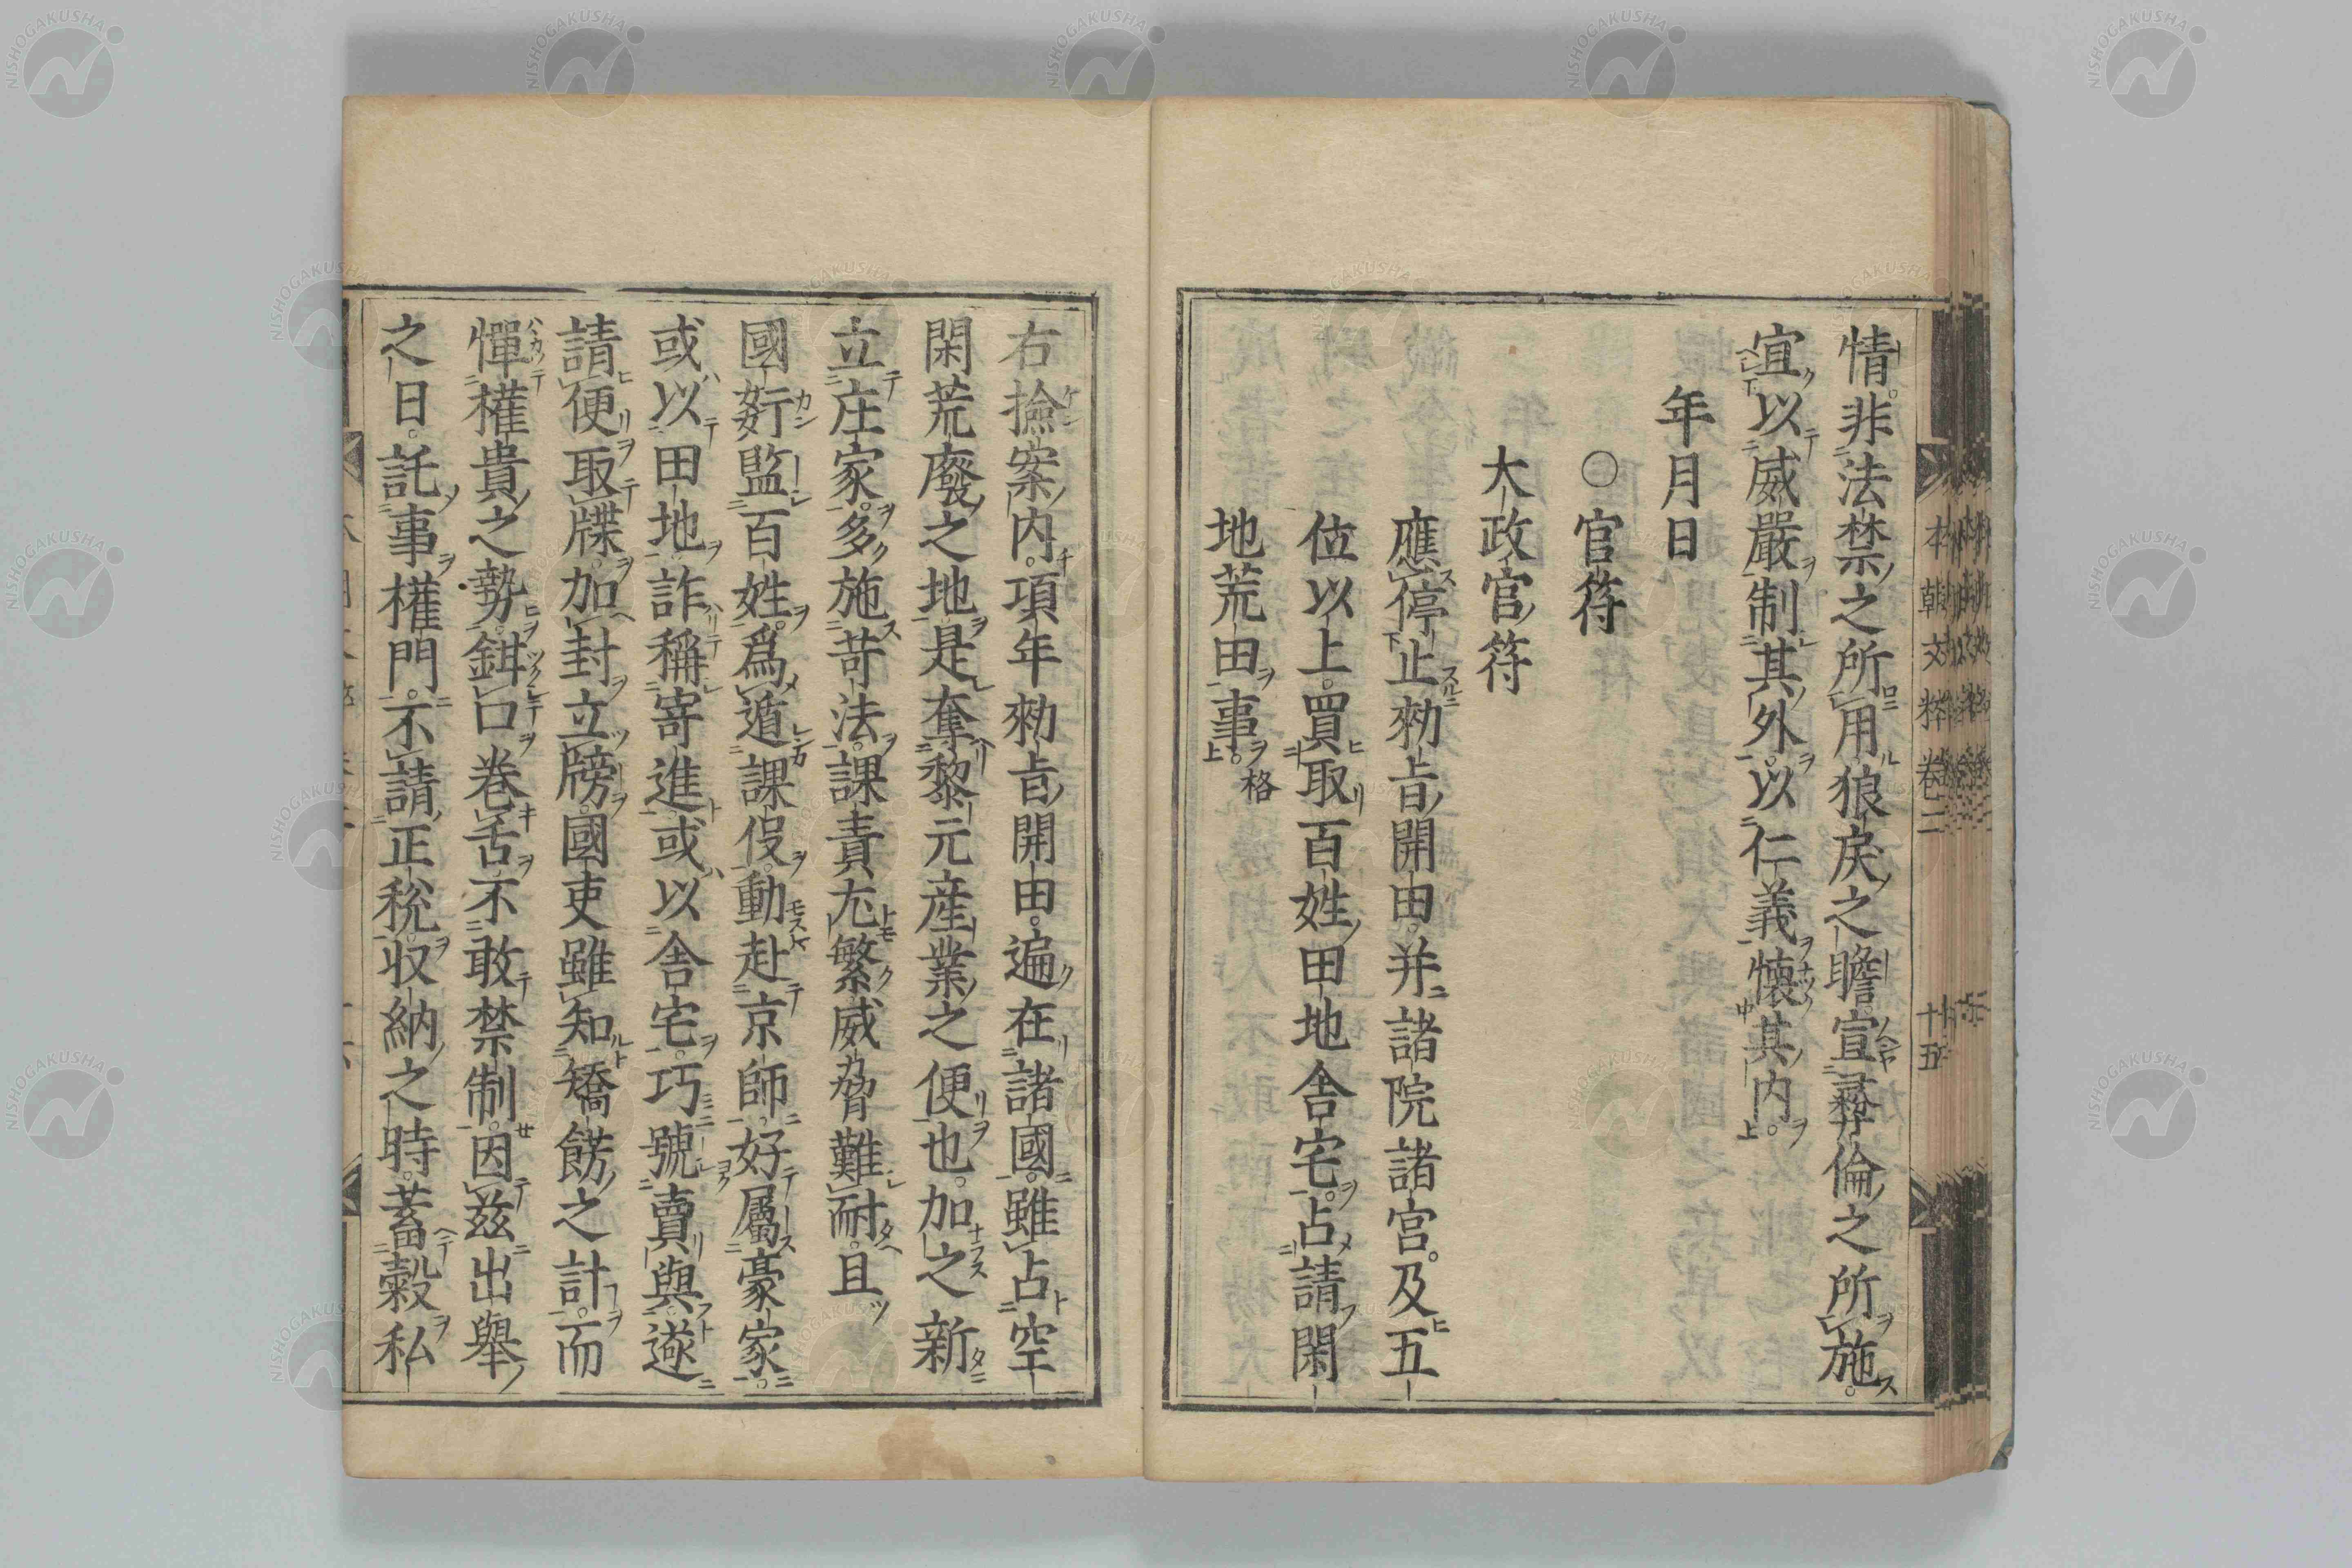 情。非法禁之所用。狼戾之瞻。宣彛倫之所施。
宜以威嚴制其外。以仁義懷其内。
年月日
〇官符
大政官符
應停止勑旨開田。并諸院諸宮。及五
位以上。買取百姓田地舎宅。占請閑
地荒田事。格
右撿案内。頃年勑旨開田。遍在諸國。雖占空
閑荒廢之地。是奪黎元産業之便也。加之新
立庄家。多施苛法。課責尤繁。威力脅難耐。且
國姧監百姓。爲遁課伇。動赴京師。好屬豪家。
或以田地詐稱寄進。或以舎宅。巧號賣與。遂
請便取牒。加封立牓。國吏雖知矯餝之計。而
憚權貴之勢。鉺口巻舌。不敢禁制。因兹出舉
之日。託事權門。不請正稅。収納之時。蓄穀私
本朝文粹卷二
十五
NISHOGAKUSHA